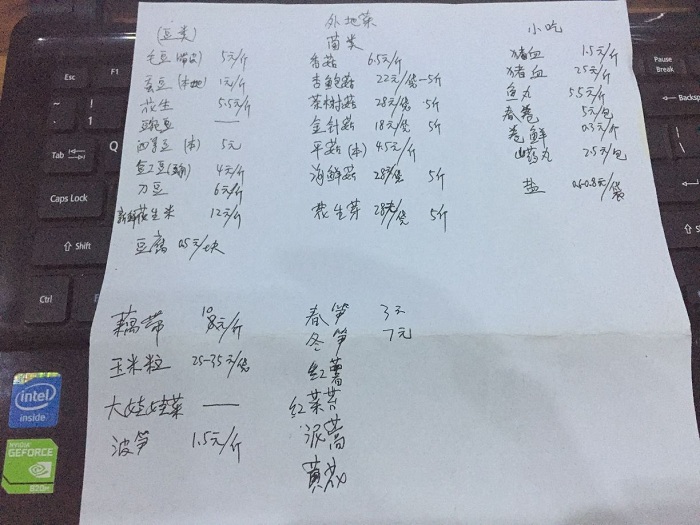 (豆类)
毛豆(带皮) 5元/斤
蚕豆(本地) 1元/斤
花生 5.5元/斤
豌豆 ——
四季豆(本) 5元
4元/斤
刀豆 6元/斤
新鲜花生米 12元/斤
豆腐 0.5元/块
外地菜
菌类
香菇 6.5元/斤
杏鲍菇 22元/袋-5斤
茶树菇 28元/袋 5斤
金针菇 18元/袋 5斤
平菇(本) 4.5元/斤
海鲜菇 28元/袋 5斤
花生芽 28元/袋 5斤
小吃
猪血 1.5元/斤
猪血 2.5元/斤
鱼丸 5.5元/斤
春卷 5元/包
卷鲜 0.3元/斤
山药丸 2.5元/包
盐 0.6-0.8元/袋
藕带 10元/斤
玉米粒 25-35元/袋
大娃娃菜 ——
波笋 1.5元/斤
春笋 3元
冬笋 7元
红薯
红菜苔
泥蒿
Esc
F1
~
`
!
1
Q
Tab
Caps Lock
Shift
Ctrl
Pause
Break
Backsp
Enter
Shift
Ctrl
intel
inside
NVIDIA
GEFORCE
820M